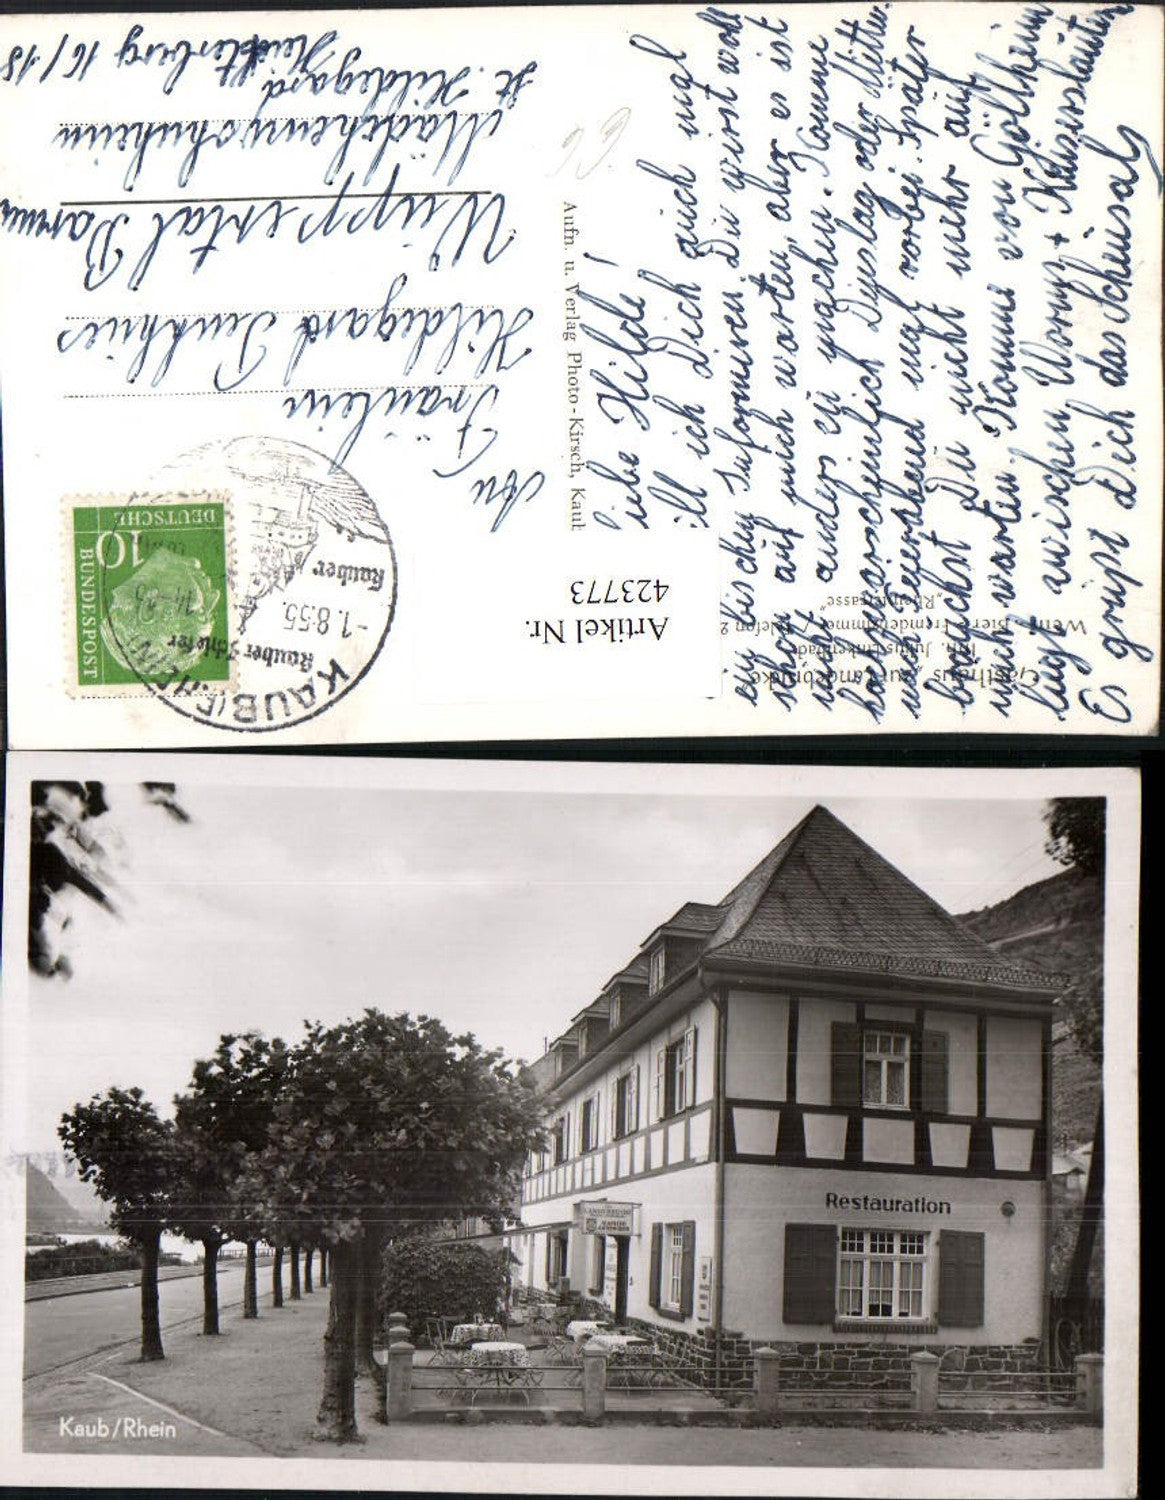 Liebe Hilde!
will ich Dich auch mal
ein bischen Informiren. Du wirst wohl
schon auf mich warten, aber es ist
nicht anders zu machen. Komme
höchstwarscheinlich Dienstag oder Mittwo
nachfeuerabend mal vorbei. Später
brauchst Du nicht mehr auf
mich warten. Komme von Göllheim
liegt zwischen Worms + Kaiserslautern
Es grüßt Dich das Scheusal
Gasthaus „zur Landebrücke"
Inh. Julius Linkenbach
Wein- u. Bierst. Fremdenzimmer / Telefon 2
„Rheinterrasse"
Aufn. u. Verlag Photo-Kirsch, Kaub
Artikel Nr.
423773
KAUB (RHEIN)
Kauber Schiefer
-1.8.55.
Kauber
DEUTSCHE
BUNDESPOST
10
An
Fräulein
Hildegard
Wuppertal Barmen
Mädchenwohnheim
St. Hildegard
16/18
Restauration
Kaub/Rhein